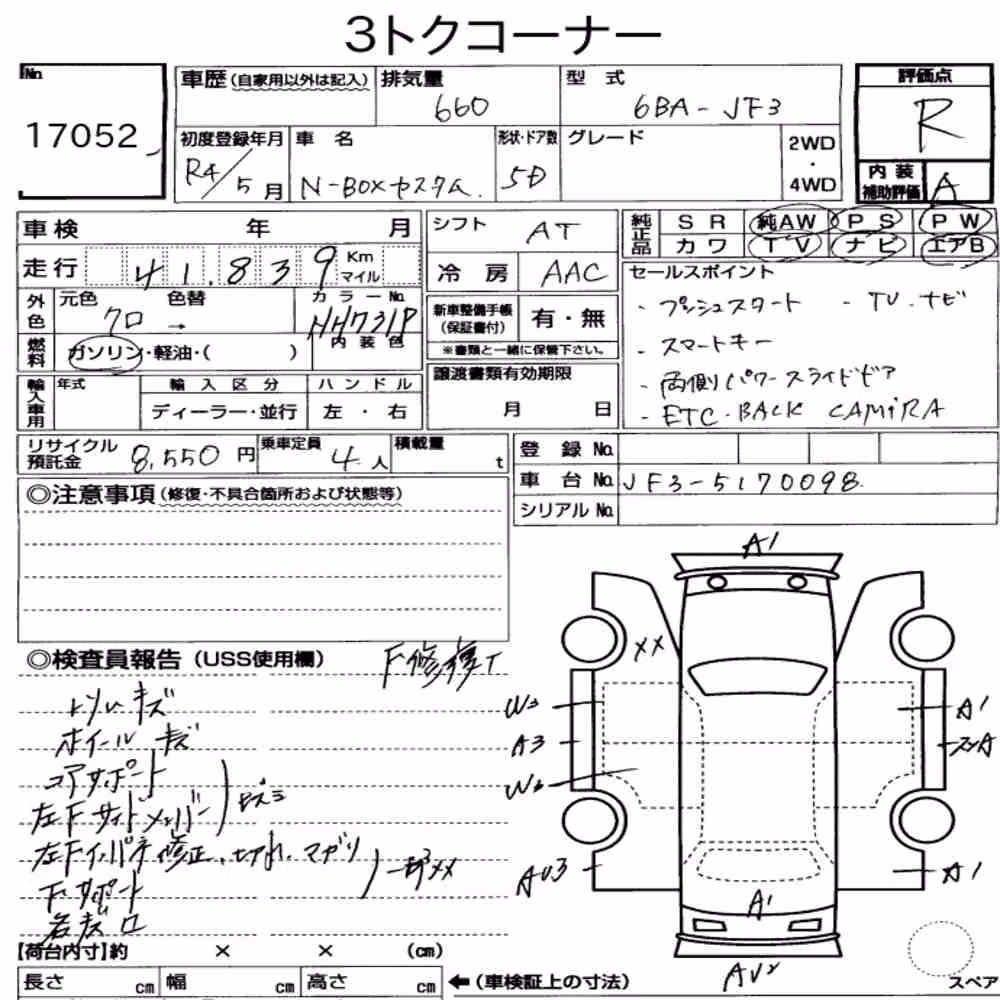 3トクコーナー
No.
17052
車歴 (自家用以外は記入)
排気量
660
型 式
6BA-JF3
評価点
R
初度登録年月
R4/5月
車 名
N-BOXカスタム.
形状・ドア数
5D
グレード
2WD
・
4WD
内 装
補助評価
A
車検 年 月
走行 41,839 Km マイル
外色
元色 色替
クロ →
カラーNo.
NH731P
燃料
ガソリン・軽油・( )
内 装 色
輸入車用
年式
輸 入 区 分
ディーラー・並行
ハ ン ド ル
左 ・ 右
シフト AT
冷 房 AAC
新車整備手帳
(保証書付)
有・無
※書類と一緒に保管下さい。
譲渡書類有効期限
月 日
純正品
S R 純AW P S P W
カ ワ T V ナ ビ エアB
セールスポイント
・プッシュスタート ・TV・ナビ
・スマートキー
・両側パワースライドドア
・ETC・BACK CAMiRA
リサイクル
預託金
8,550 円
乗車定員
4 人
積載量
t
登 録 No.
車 台 No. JF3-5170098
シリアル No.
◎注意事項 (修復・不具合箇所および状態等)
◎検査員報告 (USS使用欄)
F修復1
トリムキズ
ホイールキズ
コアサポート
左Fサイドメンバー
左Fインパネ修正、切れ、マガリ
一部××
F サポート
A1
××
W3
A3
W2
AU3
A1
A1
A1
AU2
スペア
【荷台内寸】約 × × (cm)
長さ cm 幅 cm 高さ cm
←(車検証上の寸法)